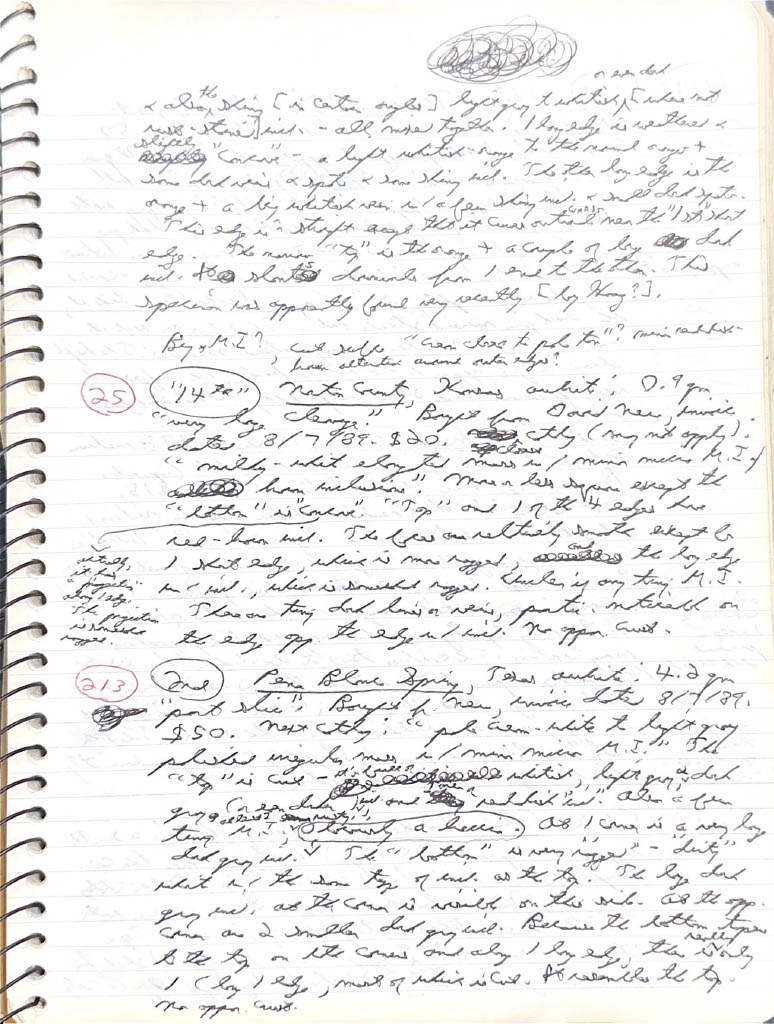 or even dark
& also, the shiny [in certain angles] light gray to whitish, [where not
rust-stained] incl. - all mixed together. 1 long edge is weathered &
slightly "concave" - a light whitish-orange to the normal orange +
some dark veins & spots & some shiny incl. The other long edge is the
orange + a big whitish vein w/ a few shiny incl. & small dark spots.
This edge is straight except that it curves outwards near the "1st" short
edge. The narrow "top" is the orange + a couple of long dark
incl. downwards from 1 end to the other. This
specimen was apparently found very recently [by Haag?].
Big M.I.? crust suffc. "cream close to pale tan"? minor reddish-
brown alteration around outer edges?
25 "14th" Norton County, Kansas aubrite; 0.9 gm.
"very large cleavage." Bought from David New, invoice
dated 8/7/89. $20. ctlg (may not apply):
"milky-white elongated mass w/ minor micro M.I. &
brown inclusions." More or less square except the
"bottom" is "concave". "Top" and 1 of the 4 edges have
red-brown incl. The faces are relatively smooth except for
1 short edge, which is more rugged, and the long edge
w/ incl., which is somewhat rugged. Unclear is any tiny M.I.
There are tiny dark lines or veins, partic. noticeable on
the edge opp. the edge w/ incl. No appar. crust.
actually,
it has
a "projection"
along 1 edge.
The projection
is somewhat
rugged.
213 2nd Pena Blanca Spring, Texas aubrite; 4.2 gm
"part slice". Bought fr. New, invoice dated 8/7/89.
$50. Next ctlg: "pale cream-white to light gray
polished irregular mass w/ minor micro M.I." The
"top" is cut - whitish, light gray or dark
gray (or even darker) incl. and reddish "incl." Also a few
tiny M.I. Obviously a breccia. At 1 corner is a very large
dark gray incl. The "bottom" is very rugged - "dirty"
white w/ the same type of incl. as the top. The large dark
gray incl. at the corner is visible on this side. At the opp.
corner are 2 smaller dark gray incl. Because the bottom tapers
to the top on the corners and along 1 long edge, there is really only
1 (long) edge, most of which is cut. It resembles the top.
No appar. crust.